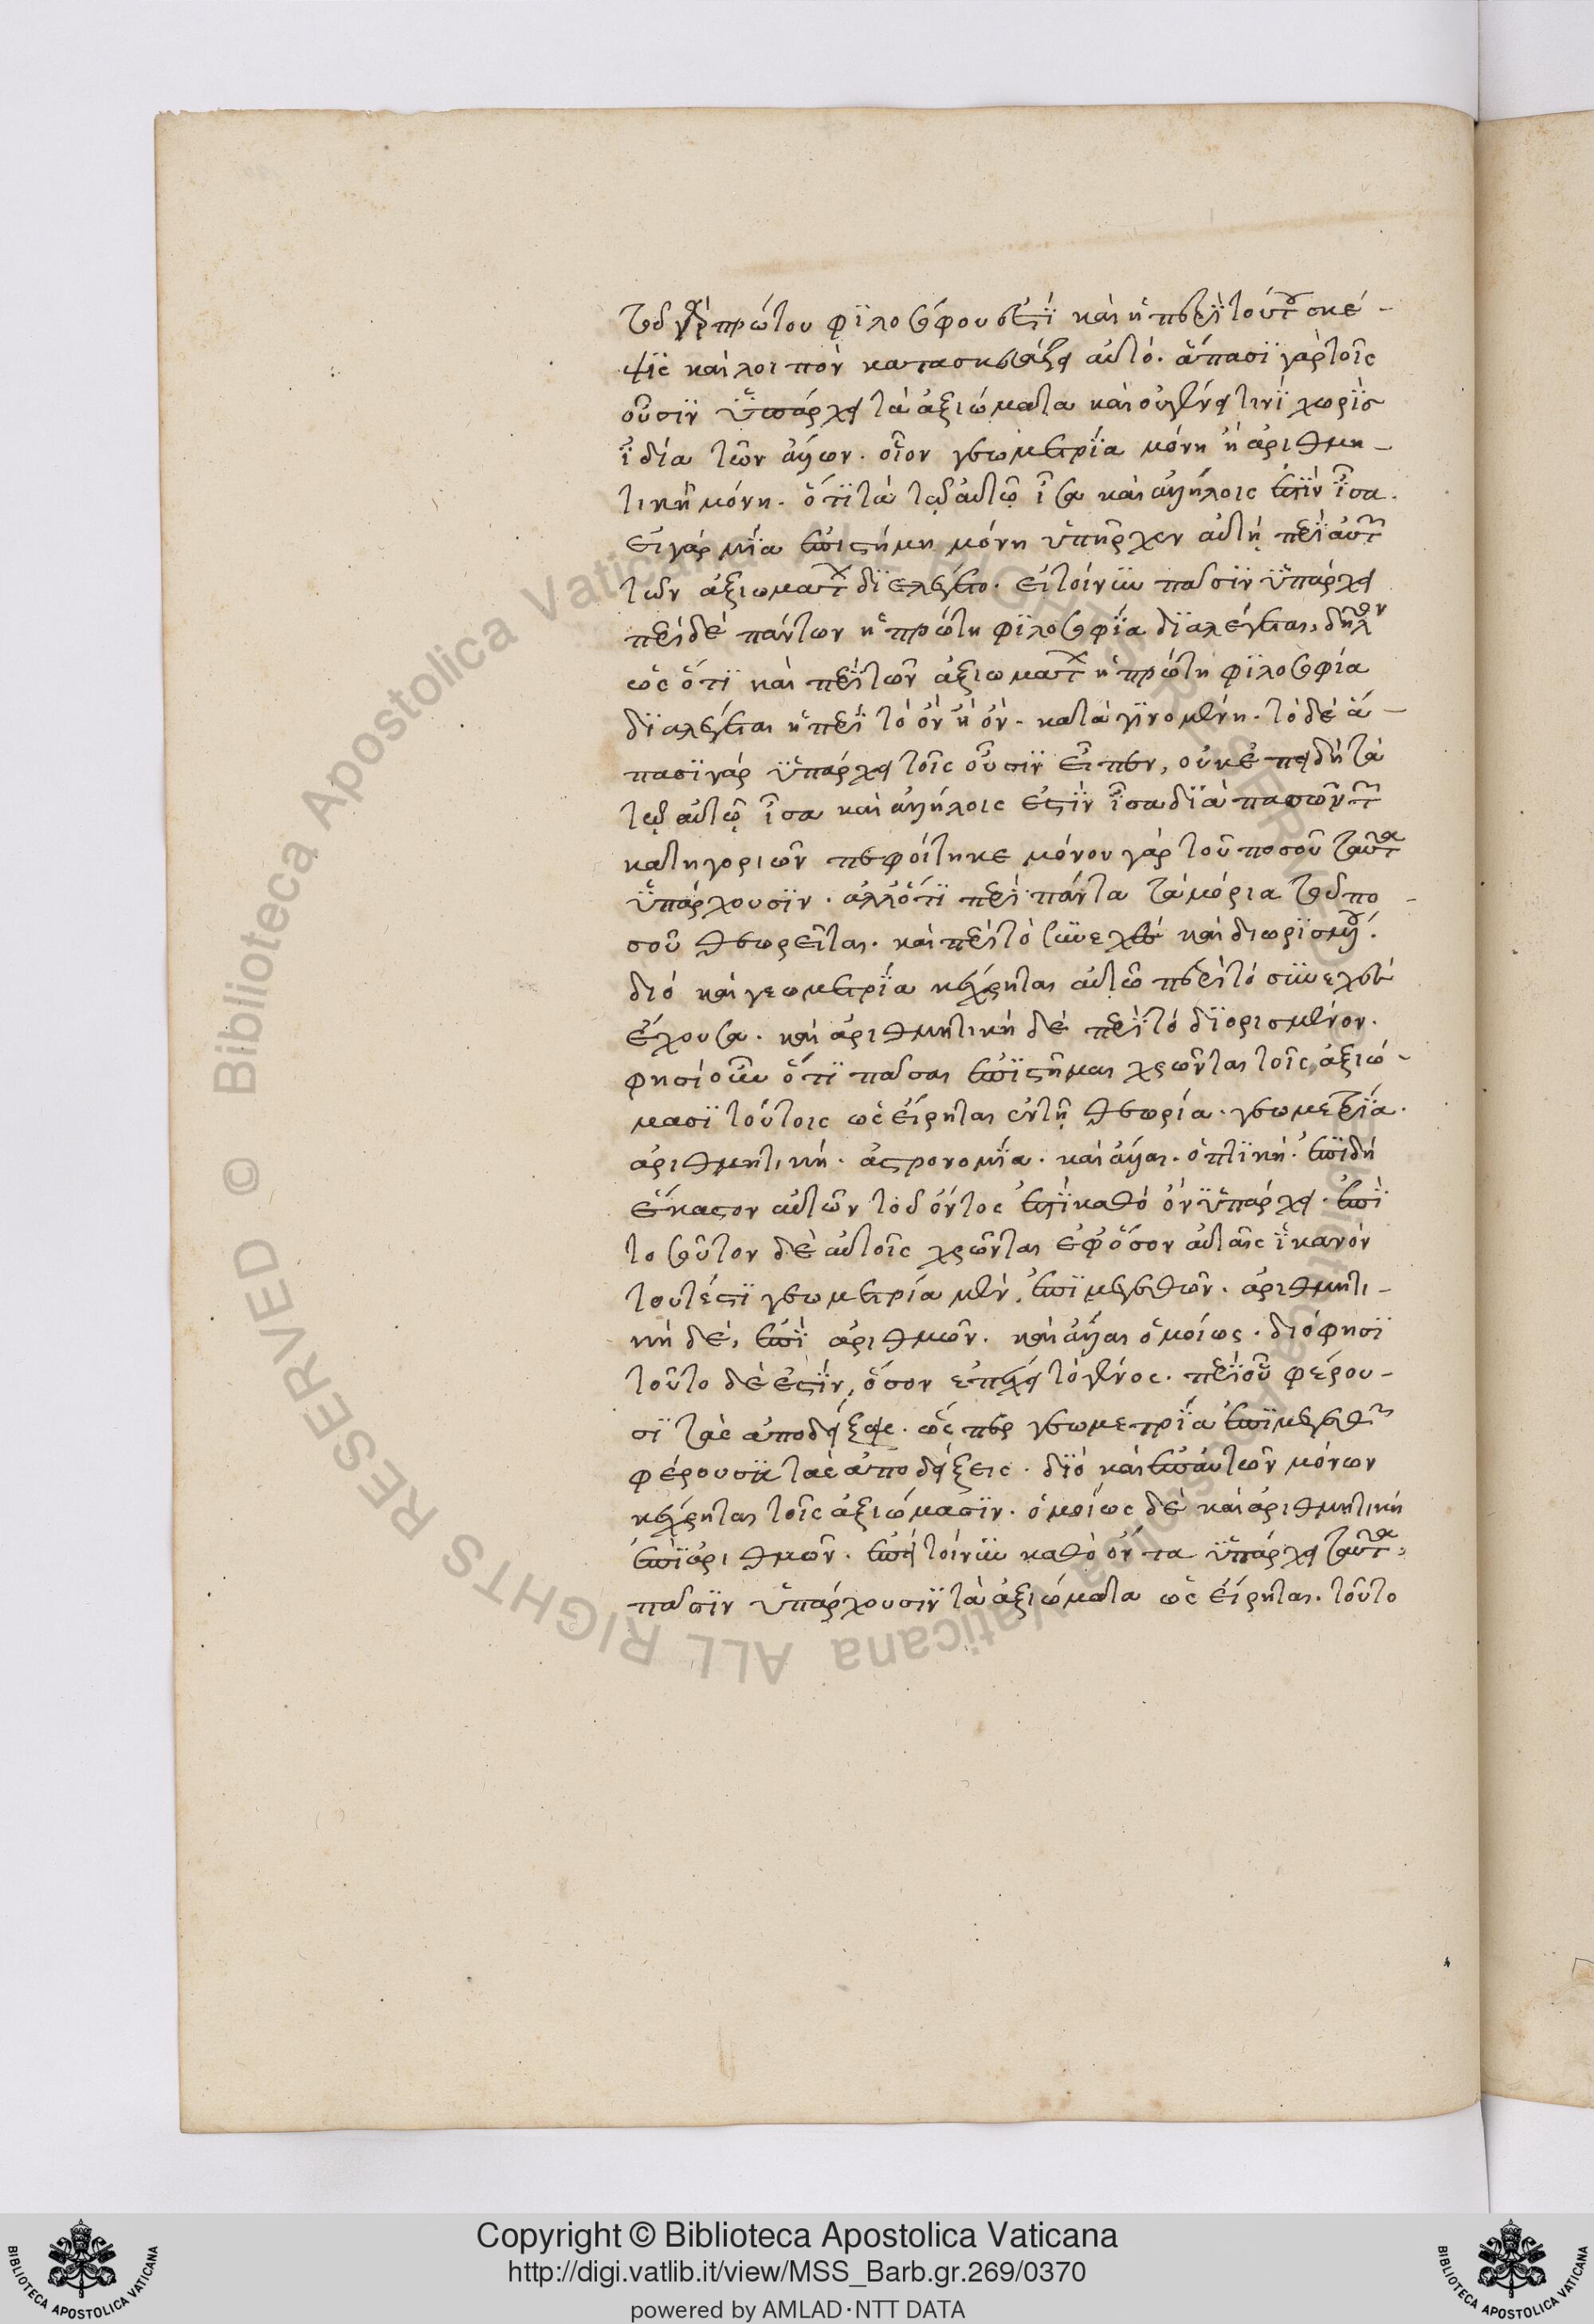 τοῦ γὰρ πρώτου φϊλοσόφου ἐστὶ καὶ ἡ περὶ τούτου σκέ-
ψις καὶ λοιπὸν κατασκευάζει αὐτό. ἅπασϊ γὰρ τοῖς
οὖσϊν ὑπάρχει τὰ ἀξιώματα καὶ οὐ γένει τινὶ χωρὶς
ἰδία τῶν ἄλλων. οἷον γεωμετρία μόνη ἢ ἀριθμη-
τικῆ μόνη. ὅτϊ τὰ τῶ αὐτῶ ἴσα καὶ ἀλλήλοις ἐστὶν ἴσα.
εἰ γὰρ μία ἐπιστήμη μόνη ὑπῆρχεν αὐτὴ περὶ αὐτῶν
τῶν ἀξιωμάτων διελέγετο. εἰ τοίνυν πᾶσϊν ὑπάρχει
περὶ δὲ πάντων ἡ πρώτη φϊλοσοφία διαλέγεται, δῆλον
ὡς ὅτϊ καὶ περὶ τῶν ἀξιωμάτων ἡ πρώτη φϊλοσοφία
διαλέγεται ἡ περὶ τὸ ὂν ἧ ὄν. καταγϊνομένη. τὸ δὲ ἅ-
πασϊ γὰρ ὑπάρχει τοῖς οὖσϊν εἶπεν, οὐκ ἐπειδὴ τὰ
τῶ αὐτῶ ἴσα καὶ ἀλλήλοις ἐστὶν ἴσα διὰ πασῶν τῶν
κατηγοριῶν πεφοίτηκε μόνον γὰρ τοῦ ποσοῦ ταῦτα
ὑπάρχουσϊν. ἀλλ' ὅτϊ περὶ πάντα τὰ μόρια τοῦ πο-
σοῦ θεωρεῖται. καὶ περὶ τὸ συνεχὲς καὶ διωρισμένον.
διὸ καὶ γεωμετρία κέχρηται αὐτῶ περὶ τὸ συνεχὲς
ἔχουσα. καὶ ἀριθμητικὴ δὲ περὶ τὸ διορισμένον.
φησὶ οὖν ὅτϊ πᾶσαι ἐπιστῆμαι χρῶνται τοῖς ἀξιώ-
μασϊ τούτοις ὡς εἴρηται ἐν τῆ θεωρία. γεωμετρία.
ἀριθμητικὴ. ἀστρονομία. καὶ ἄλλαι. ὀπτικὴ. ἐπϊδὴ
ἕκαστον αὐτῶν τοῦ ὄντος ἐστὶ καθὸ ὂν ὑπάρχει. ἐπὶ
τοσοῦτον δὲ αὐτοῖς χρῶνται ἐφ' ὅσον αὐταῖς ἱκανὸν
τουτέστϊ γεωμετρία μὲν, ἐπὶ μεγεθῶν. ἀριθμητι-
κὴ δὲ, ἐπὶ ἀριθμῶν. καὶ ἄλλαι ὁμοίως. διό φησϊ
τοῦτο δὲ ἐστὶν, ὅσον ἐπέχει τὸ γένος. περὶ οὗ φέρου-
σϊ τὰς ἀποδείξεις. ὥς περ γεωμετρία ἐπὶ μεγεθῶν
φέρουσϊ τὰς ἀποδείξεις. διὸ καὶ ἐπ' αὐτῶν μόνων
κέχρηται τοῖς ἀξιώμασϊν. ὁμοίως δὲ καὶ ἀριθμητικὴ
ἐπὶ ἀριθμῶν. ἐπεὶ τοίνυν καθὸ ὄντα ὑπάρχει ταῦτα,
πᾶσϊν ὑπάρχουσϊν τὰ ἀξιώματα ὡς εἴρηται. τοῦτο
Copyright © Biblioteca Apostolica Vaticana
http://digi.vatlib.it/view/MSS_Barb.gr.269/0370
powered by AMLAD·NTT DATA
BIBLIOTECA APOSTOLICA VATICANA
BIBLIOTECA APOSTOLICA VATICANA
© Biblioteca Apostolica Vaticana ALL RIGHTS RESERVED
© Biblioteca Apostolica Vaticana ALL RIGHTS RESERVED